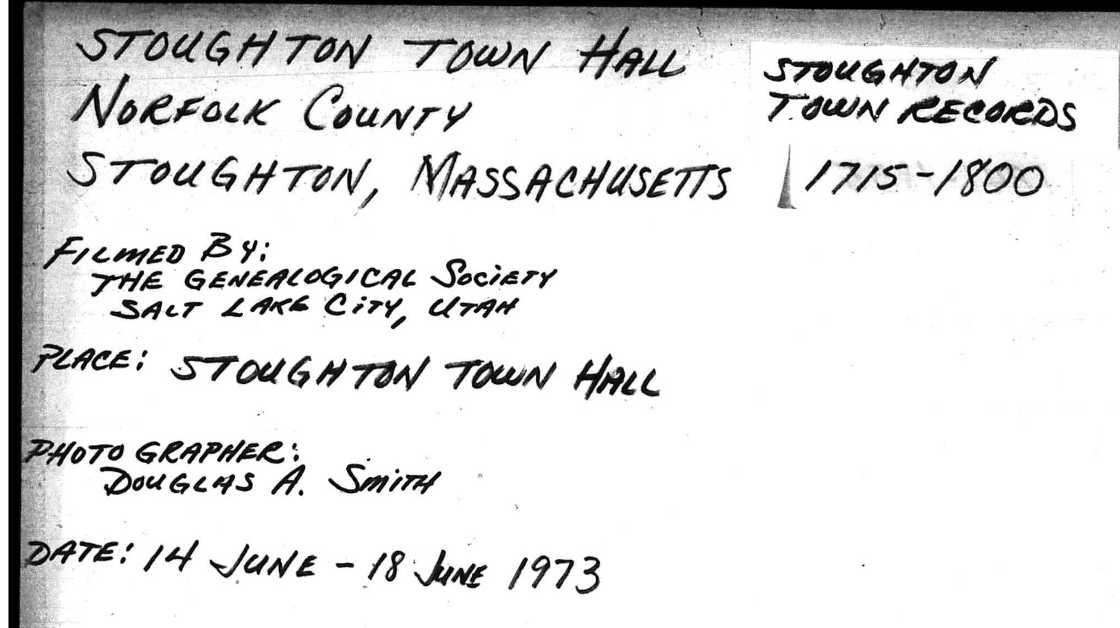 STOUGHTON TOWN HALL
NORFOLK COUNTY
STOUGHTON, MASSACHUSETTS
STOUGHTON
TOWN RECORDS
1715-1800
FILMED BY:
THE GENEALOGICAL SOCIETY
SALT LAKE CITY, UTAH
PLACE: STOUGHTON TOWN HALL
PHOTOGRAPHER:
DOUGLAS A. SMITH
DATE: 14 JUNE - 18 JUNE 1973